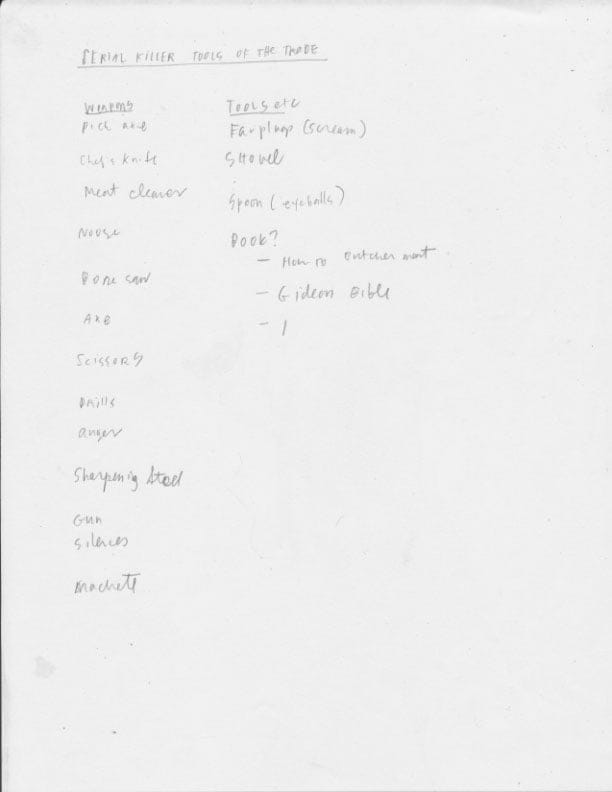 SERIAL KILLER TOOLS OF THE TRADE
Weapons
Pick axe
Chef's Knife
Meat cleaver
Noose
Bone saw
Axe
Scissors
Drills
auger
Sharpenig Steel
Gun
Silences
Machete
Tools etc
Earplugs (scream)
Shovel
Spoon (eyeballs)
Book?
- How to butcher meat
- Gideon Bible
-